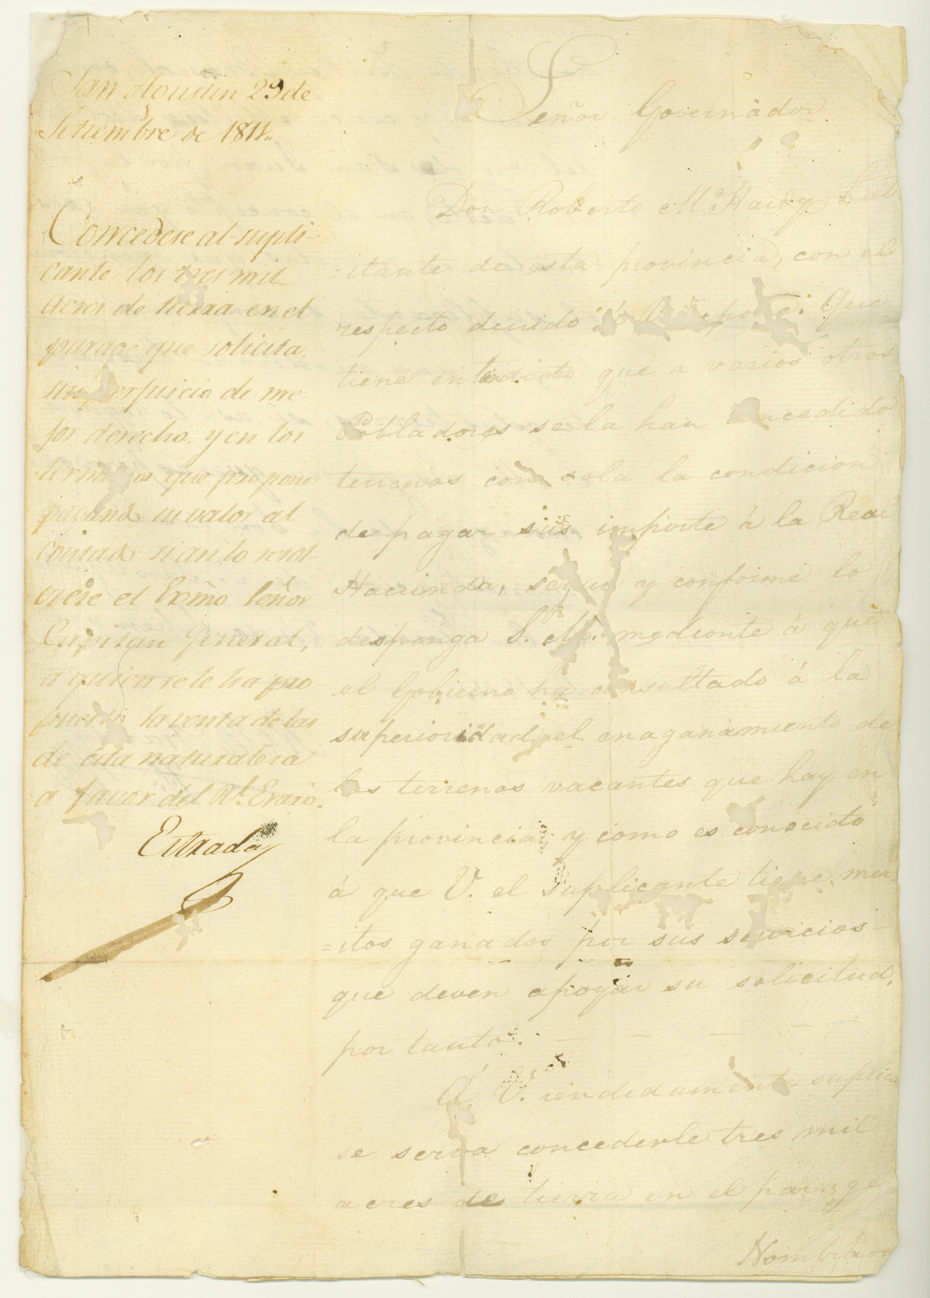 San Agustin 29 de
Setiembre de 1811.
Concedese al supli-
cante los tres mil
acres de tierra en el
parage que solicita,
sin perjuicio de me-
jor derecho, y en los
terminos que propone
pagando su valor al
contado si an lo resol
viese el Exmõ Señor
Capitan General,
a quien se le ha pro
puesto la venta de las
de esta naturaleza
a favor del Rl. Erario.
Estrada
Señor Governador
Don Roberto McHardy, Hab
=itante de esta provincia, con el
respecto devido á expone: Que
tiene entendido que a varios otros
Pobladores se la han concedido
terrenos con sola la condicion
de pagar sus importe á la Real
Hacienda, segun y conforme lo
desponga S. M. mediante á que
el Gobierno ha consultado á la
superioridad el enaganamiento de
los terrenos vacantes que hay en
la provincia, y como es conocido
á que V. el suplicante tiene mer
=itos ganados por sus servicios
que deven apoyar su solicitud,
por tanto.
A V. rendidamente suplica
se serva concederle tres mil
acres de tierra en el parage
Nombrado